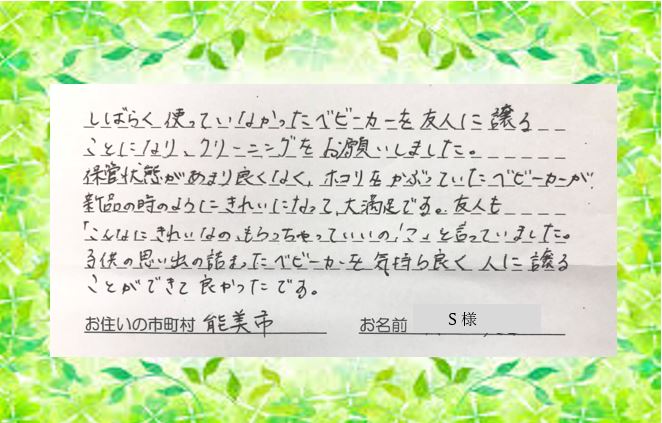 しばらく使っていなかったベビーカーを友人に譲る
ことになり、クリーニングをお願いしました。
保管状態があまり良くなく、ホコリをかぶっていたベビーカーが
新品の時のようにきれいになって、大満足です。友人も
「こんなにきれいなの、もらっちゃっていいの!?」と言っていました。
子供の思い出の詰まったベビーカーを気持ち良く人に譲る
ことができて良かったです。
お住いの市町村 能美市 お名前 S様